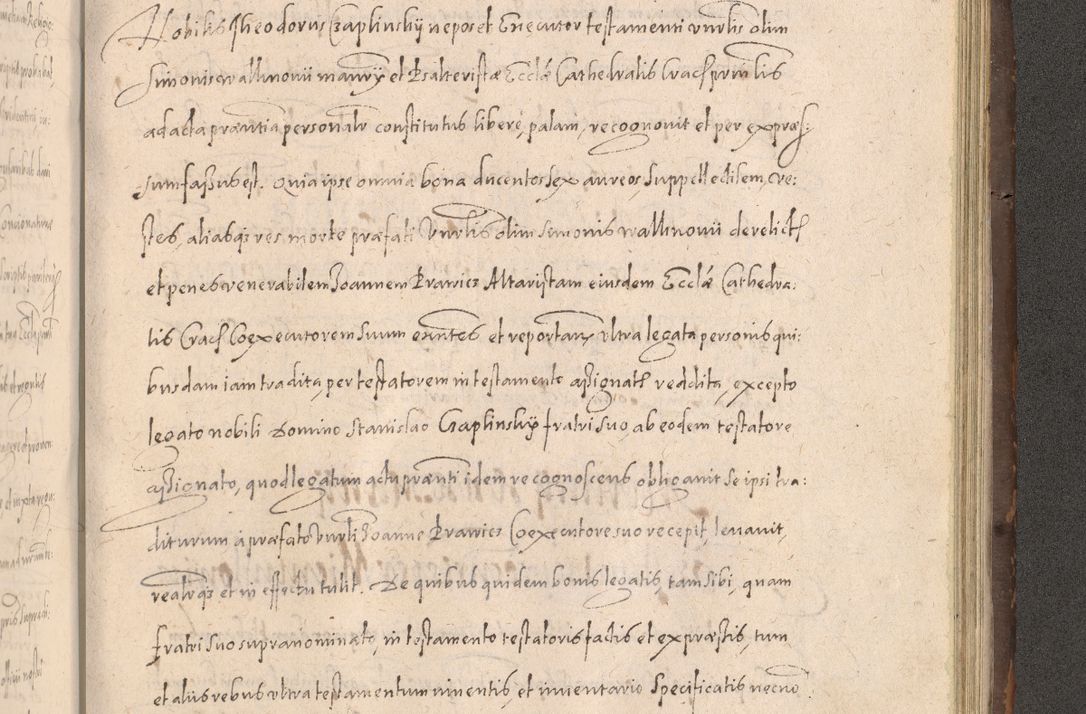 Nobilis Theodorus Czaplinskÿ nepos et Executor testamenti vnrlis olim
Simonis wallinouii mansrÿ et Psalteristæ Ecclæ Cathedralis Crac prnlis
ad acta præsentia personalr constitutus libere, palam, recognouit et per expræs:
sum fassus est. Quia ipse omnia bona ducentos sex aureos, suppellectilem, ve:
stes, aliasqs res morte præfati Vnrlis olim Simonis wallinouii derelict
et penes venerabilem Joannem Prawicz Altaristam eiusdem Ecclæ Cathedra:
lis Crac Coexecutorem suum exntes et reportam vltra legata personis qui:
busdam iam tradita, per testatorem in testamento assignat reddita, excepto
legato nobili Domino Stanislao Czaplinskÿ fratri suo, ab eodem testatore
assignato, quod legatum actu prænti idem recognoscens obligauit se ipsi tra:
diturum à præfato Vnrli Joanne Prawicz Coexecutore suo recepit, leuauit,
realrqs et in effectu tulit. De quibus quidem bonis legatis, tam sibi, quam
fratri suo supranominato, in testamento testatoris factis et expræstis, tum
et aliis rebus vltra testamentum inuentis, et inuentario specificatis necno